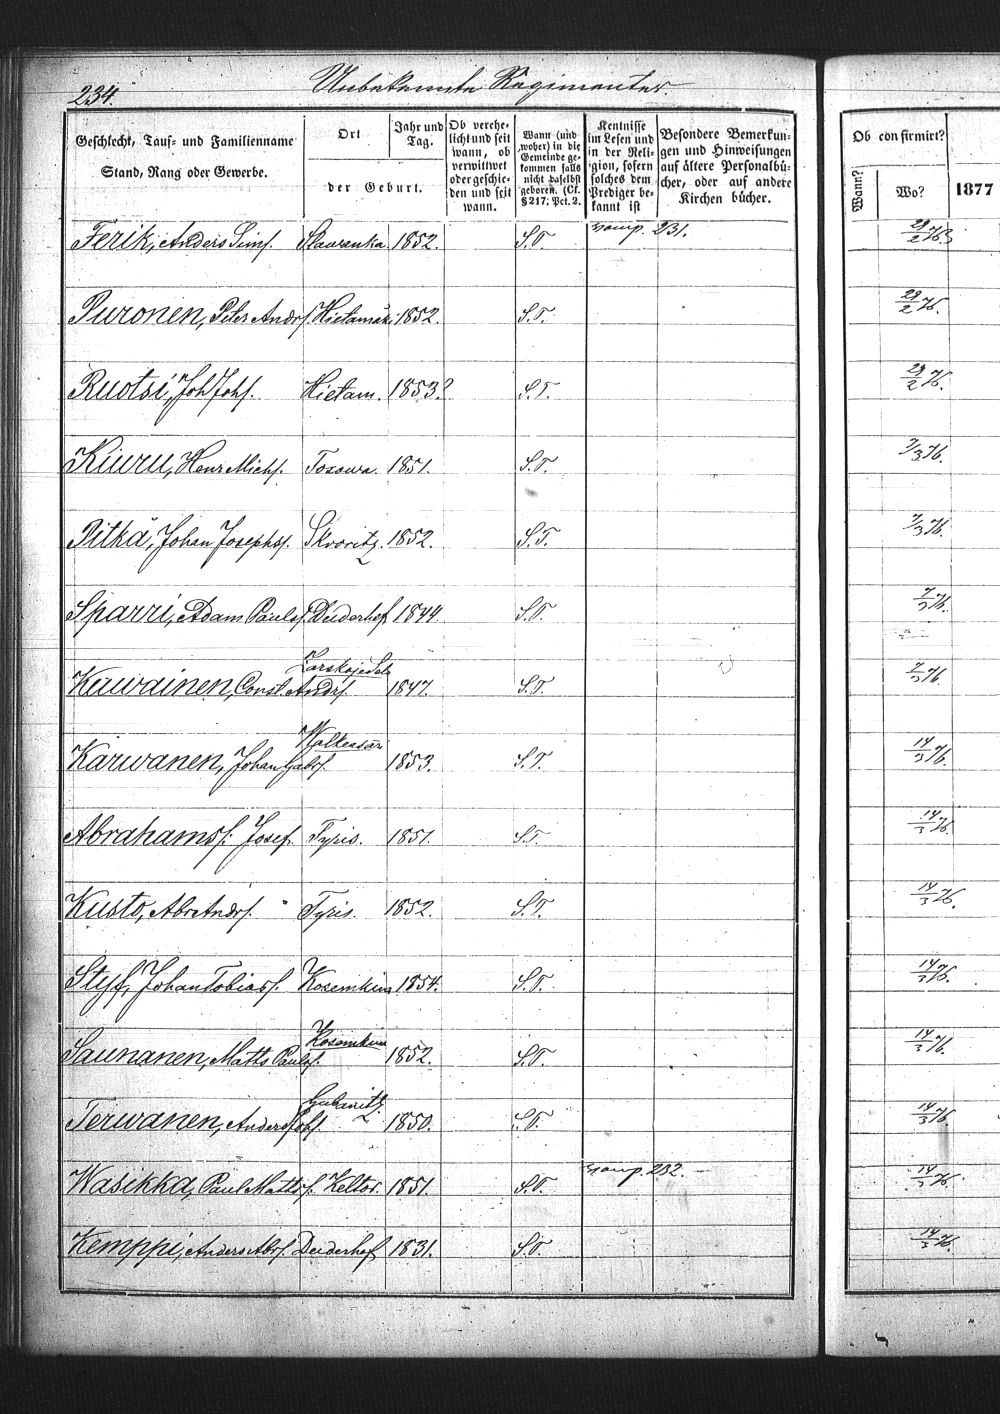 234.
Unbekannte Regimenter
Geschlecht, Tauf- und Familienname
Stand, Rang oder Gewerbe.
Ort
der Geburt.
Jahr und
Tag.
Ob verehe-
licht und seit
wann, ob
verwittwet
oder geschie-
den und seit
wann.
Wann (und
woher) in die
Gemeinde ge-
kommen falls
nicht daselbst
geboren. (Cf.
§ 217; Pct. 2.
Kentnisse
im Lesen und
in der Reli-
gion, sofern
solches dem
Prediger be-
kannt ist
Besondere Bemerkun-
gen und Hinweisungen
auf ältere Personalbü-
cher, oder auf andere
Kirchen bücher.
Ob confirmirt?
Wann?
Wo?
1877
Ferik, Anders Sims. Slavanka 1852. S.T. 231. 29/2 76
Puronen, Peter Andrs. Hietamäki 1852. S.T. 29/2 76.
Ruotsi, Joh Johs. Hietam. 1853? S.T. 29/2 76.
Kiuru, Henr Michs. Toxowa 1851. S.T. 7/3 76.
Pitkä, Johan Josephss. Skworitz. 1852. S.T. 7/3 76.
Sparri, Adam Paulss. Duderhof 1844. S.T. 7/3 76.
Zarskoje Selo
Kauwainen, Const. Andrs. 1847. S.T. 7/3 76.
Walkeasari
Karwanen, Johan Gabrs. 1853. S.T. 14/3 76.
Abrahamss. Josef Tyris. 1851. S.T. 14/3 76.
Kusto, Abr Andrs. Tyris. 1852. S.T. 14/3 76.
Styf, Johan Tobiass. Kosemkina 1854. S.T. 14/3 76.
Kosemkina
Saunanen, Matts Paulss. 1852. S.T. 14/3 76.
Gubanitz
Terwanen, Anders Johs. 1850. S.T. 14/3 76.
Wasikka, Paul Mattss. Keltos. 1851. S.T. 232. 14/3 76.
Kemppi, Anders Abrs. Duderhof 1831. S.T. 14/3 76.